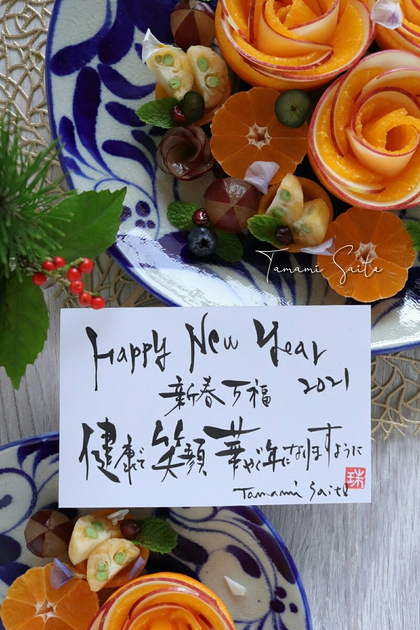 Tamami Saita
Happy New Year
2021
新春万福
健康で笑顔華やぐ年になりますように
Tamami Saito
珠